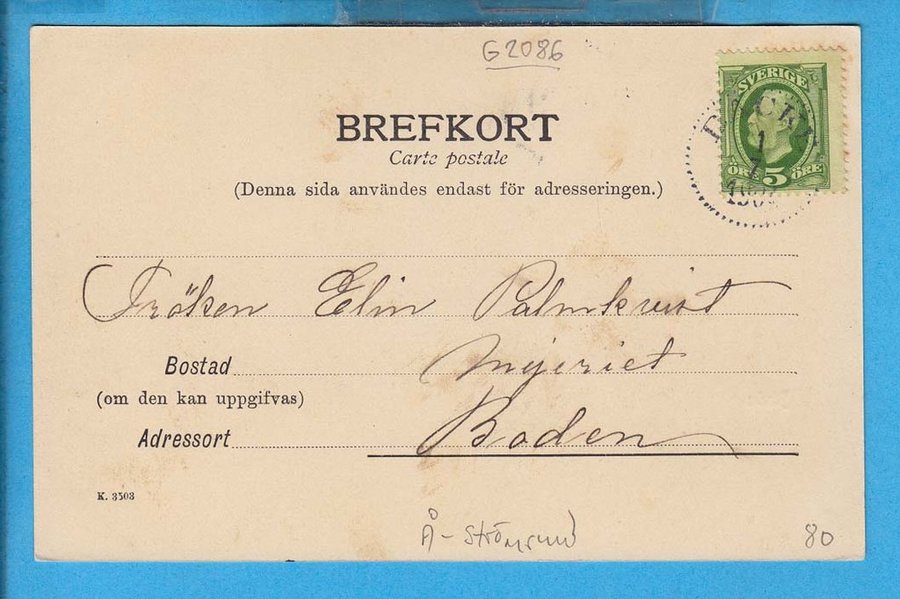 G2086
SVERIGE
ÖRE 5 ÖRE
1
BREFKORT
Carte postale
(Denna sida användes endast för adresseringen.)
Fröken Elin Palmkvist
Bostad Mejeriet
(om den kan uppgifvas)
Adressort Boden
K. 3503
Å-Strömsund
80